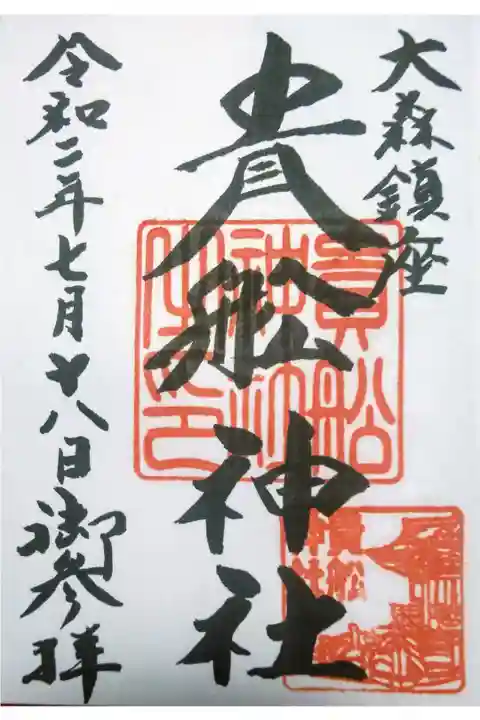 大森鎮座
貴舩神社
令和二年七月十八日御参拝
貴船
神社